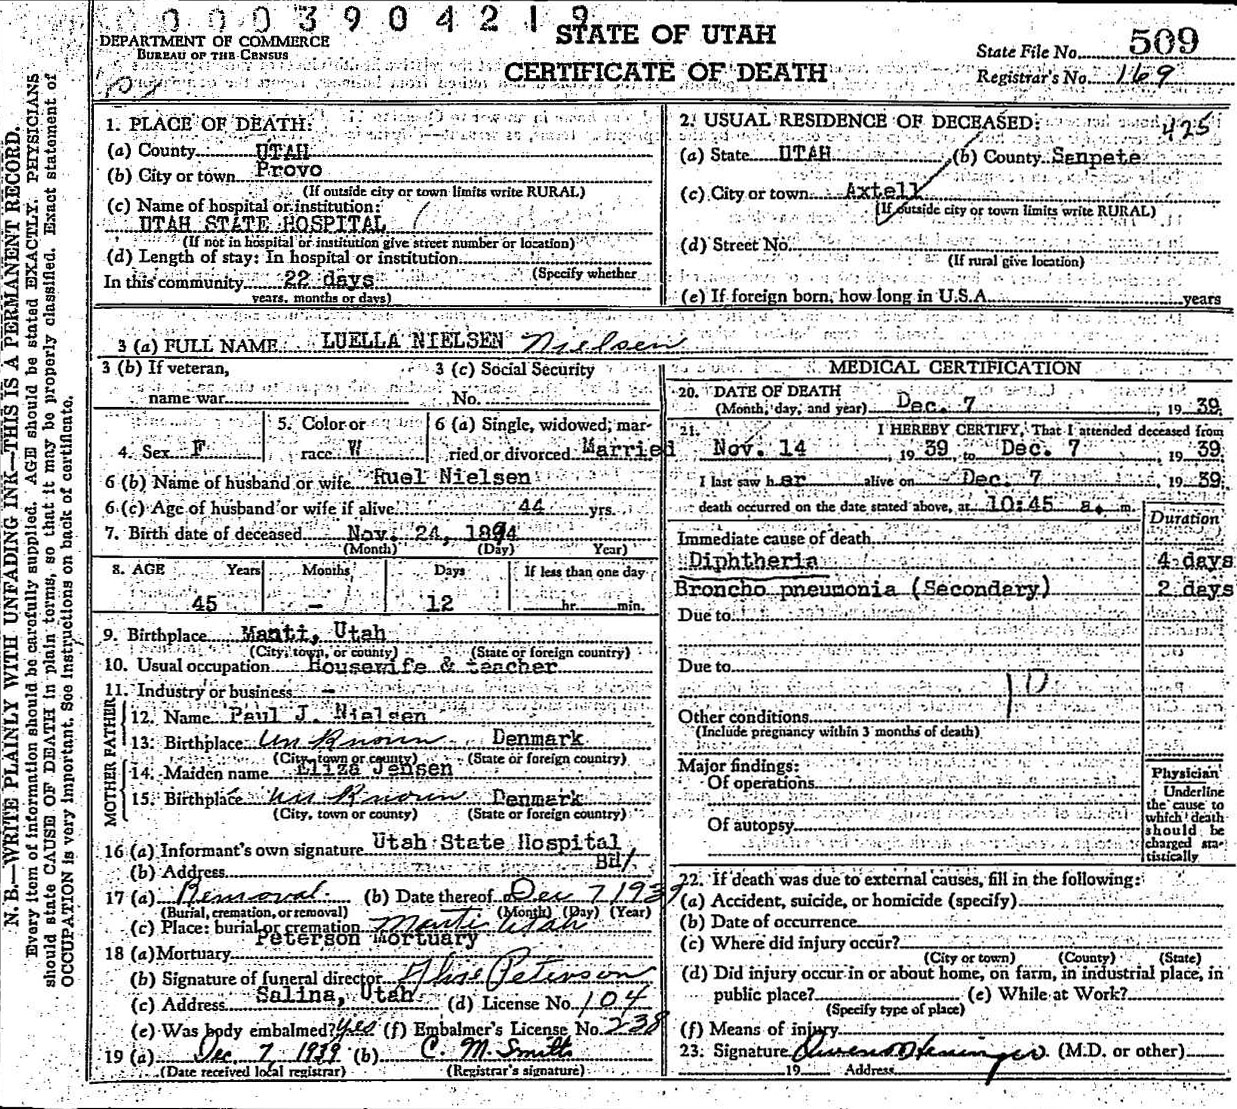 0003904219
DEPARTMENT OF COMMERCE
BUREAU OF THE CENSUS
STATE OF UTAH
CERTIFICATE OF DEATH
State File No. 509
Registrar's No. 169
N. B.—WRITE PLAINLY WITH UNFADING INK—THIS IS A PERMANENT RECORD.
Every item of information should be carefully supplied. AGE should be stated EXACTLY. PHYSICIANS
should state CAUSE OF DEATH in plain terms, so that it may be properly classified. Exact statement of
OCCUPATION is very important. See instructions on back of certificate.
1. PLACE OF DEATH:
(a) County UTAH
(b) City or town Provo
(If outside city or town limits write RURAL)
(c) Name of hospital or institution:
UTAH STATE HOSPITAL
(If not in hospital or institution give street number or location)
(d) Length of stay: In hospital or institution
(Specify whether
In this community 22 days
years, months or days)
2. USUAL RESIDENCE OF DECEASED: 425
(a) State UTAH (b) County Senpete
(c) City or town Axtell
(If outside city or town limits write RURAL)
(d) Street No.
(If rural give location)
(e) If foreign born, how long in U.S.A. years
3 (a) FULL NAME LUELLA NIELSEN Nielsen
3 (b) If veteran, name war
3 (c) Social Security No.
4. Sex F
5. Color or race W
6 (a) Single, widowed, married or divorced Married
6 (b) Name of husband or wife Ruel Nielsen
6 (c) Age of husband or wife if alive 44 yrs.
7. Birth date of deceased Nov. 24, 1894
(Month) (Day) Year)
8. AGE Years Months Days If less than one day
45 - 12 hr. min.
9. Birthplace Manti, Utah
(City, town, or county) (State or foreign country)
10. Usual occupation Housewife & teacher
11. Industry or business -
FATHER
12. Name Paul J. Nielsen
13. Birthplace Unknown Denmark
(City, town or county) (State or foreign country)
MOTHER
14. Maiden name Eliza Jensen
15. Birthplace Unknown Denmark
(City, town or county) (State or foreign country)
16 (a) Informant's own signature Utah State Hospital
(b) Address BH/
17 (a) Removal (b) Date thereof Dec 7 1939
(Burial, cremation, or removal) (Month) (Day) (Year)
(c) Place: burial or cremation Manti Utah
18 (a) Mortuary Peterson Mortuary
(b) Signature of funeral director Peterson
(c) Address Salina, Utah (d) License No. 104
(e) Was body embalmed? yes (f) Embalmer's License No. 238
19 (a) Dec 7, 1939 (b) C. M. Smith
(Date received local registrar) (Registrar's signature)
MEDICAL CERTIFICATION
20. DATE OF DEATH
(Month, day, and year) Dec. 7, 19 39
21. I HEREBY CERTIFY, That I attended deceased from
Nov. 14 19 39, to Dec. 7, 19 39
I last saw her alive on Dec. 7, 19 39;
death occurred on the date stated above, at 10:45 a. m.
Duration
Immediate cause of death
Diphtheria 4 days
Broncho pneumonia (Secondary) 2 days
Due to
Due to
10
Other conditions
(Include pregnancy within 3 months of death)
Major findings:
Of operations
Of autopsy
Physician
Underline
the cause to
which death
should be
charged sta-
tistically
22. If death was due to external causes, fill in the following:
(a) Accident, suicide, or homicide (specify)
(b) Date of occurrence
(c) Where did injury occur?
(City or town) (County) (State)
(d) Did injury occur in or about home, on farm, in industrial place, in
public place? (e) While at Work?
(Specify type of place)
(f) Means of injury
23. Signature (M.D. or other)
19 Address